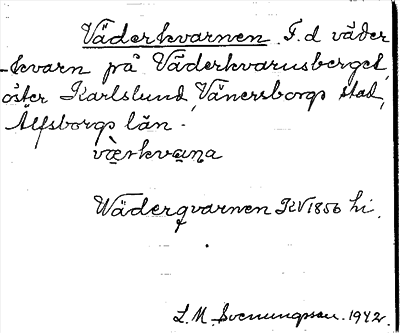 Väderkvarnen. F.d väder
-kvarn på Väderkvarnsberget,
öster Karlslund, Vänersborgs stad,
Älfsborgs län.
væ̀rkvaṇa
Wäderqvarnen JRV 1856 hi.
L.M. Svenungsson. 1942.